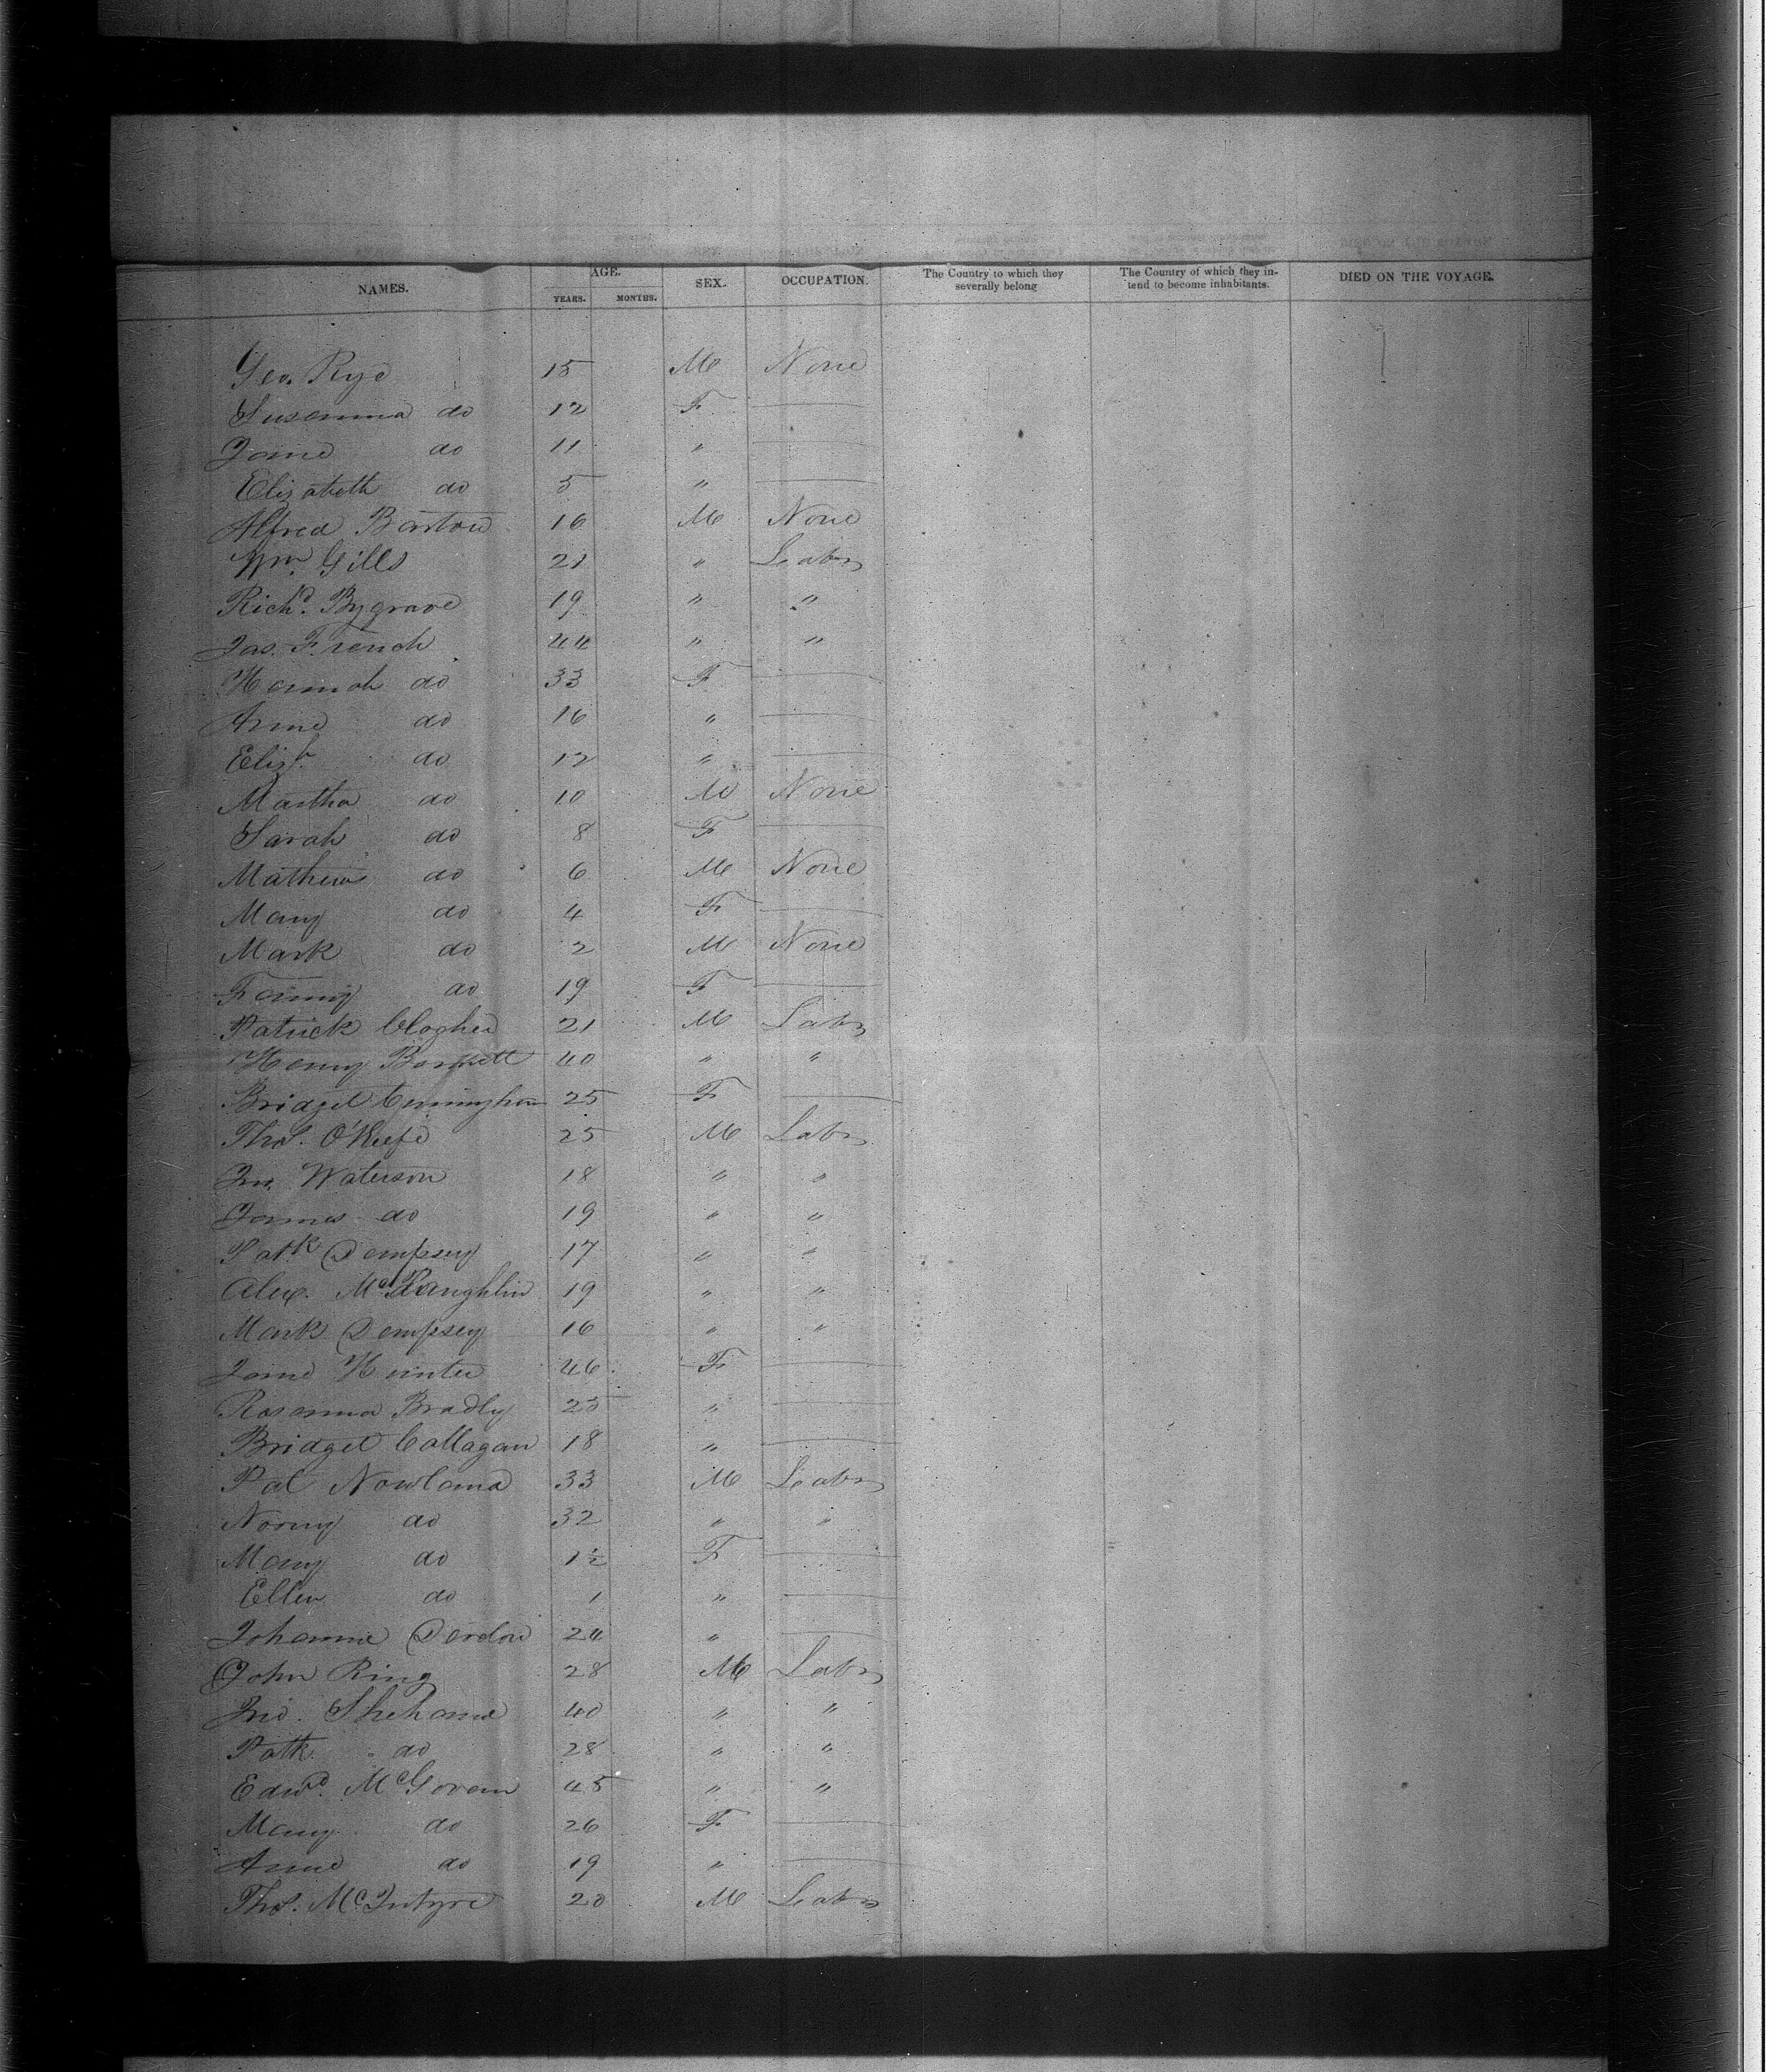 NAMES. AGE. YEARS. MONTHS. SEX. OCCUPATION. The Country to which they severally belong The Country of which they in-tend to become inhabitants. DIED ON THE VOYAGE.
Geo. Rye 15 M None
Susanna do 12 F —
Jane do 11 " —
Elizabeth do 5 " —
Alfred Barton 16 M None
Wm. Gills 21 " Labr
Richd. Bygrave 19 " "
Jas. French 44 " "
Hannah do 33 F —
Anne do 16 " —
Elizh. do 12 " —
Martha do 10 M None
Sarah do 8 F —
Mathew do 6 M None
Mary do 4 F —
Mark do 2 M None
Fanny do 19 F —
Patrick Clogher 21 M Labr
Henry 40 " "
Bridget Cunningham 25 F —
Thos. O'Keefe 25 M Labr
Jno. Waterson 18 " "
James do 19 " "
Patk Dempsey 17 " "
Alex. McLaughlin 19 " "
Mark Dempsey 16 " "
Jane Hunter 46 F —
Rosanna Bradly 25 " —
Bridget Callagan 18 " —
Pat Nowland 33 M Labr
Norry do 32 " "
Mary do 1½ F —
Ellen do 1 " —
Johanna 24 " —
John Ring 28 M Labr
Jno. Shehane 40 " "
Patk do 28 " "
Edwd. McGovern 45 " "
Mary do 26 F —
Anne do 19 " —
Thos. McIntyre 20 M Labr